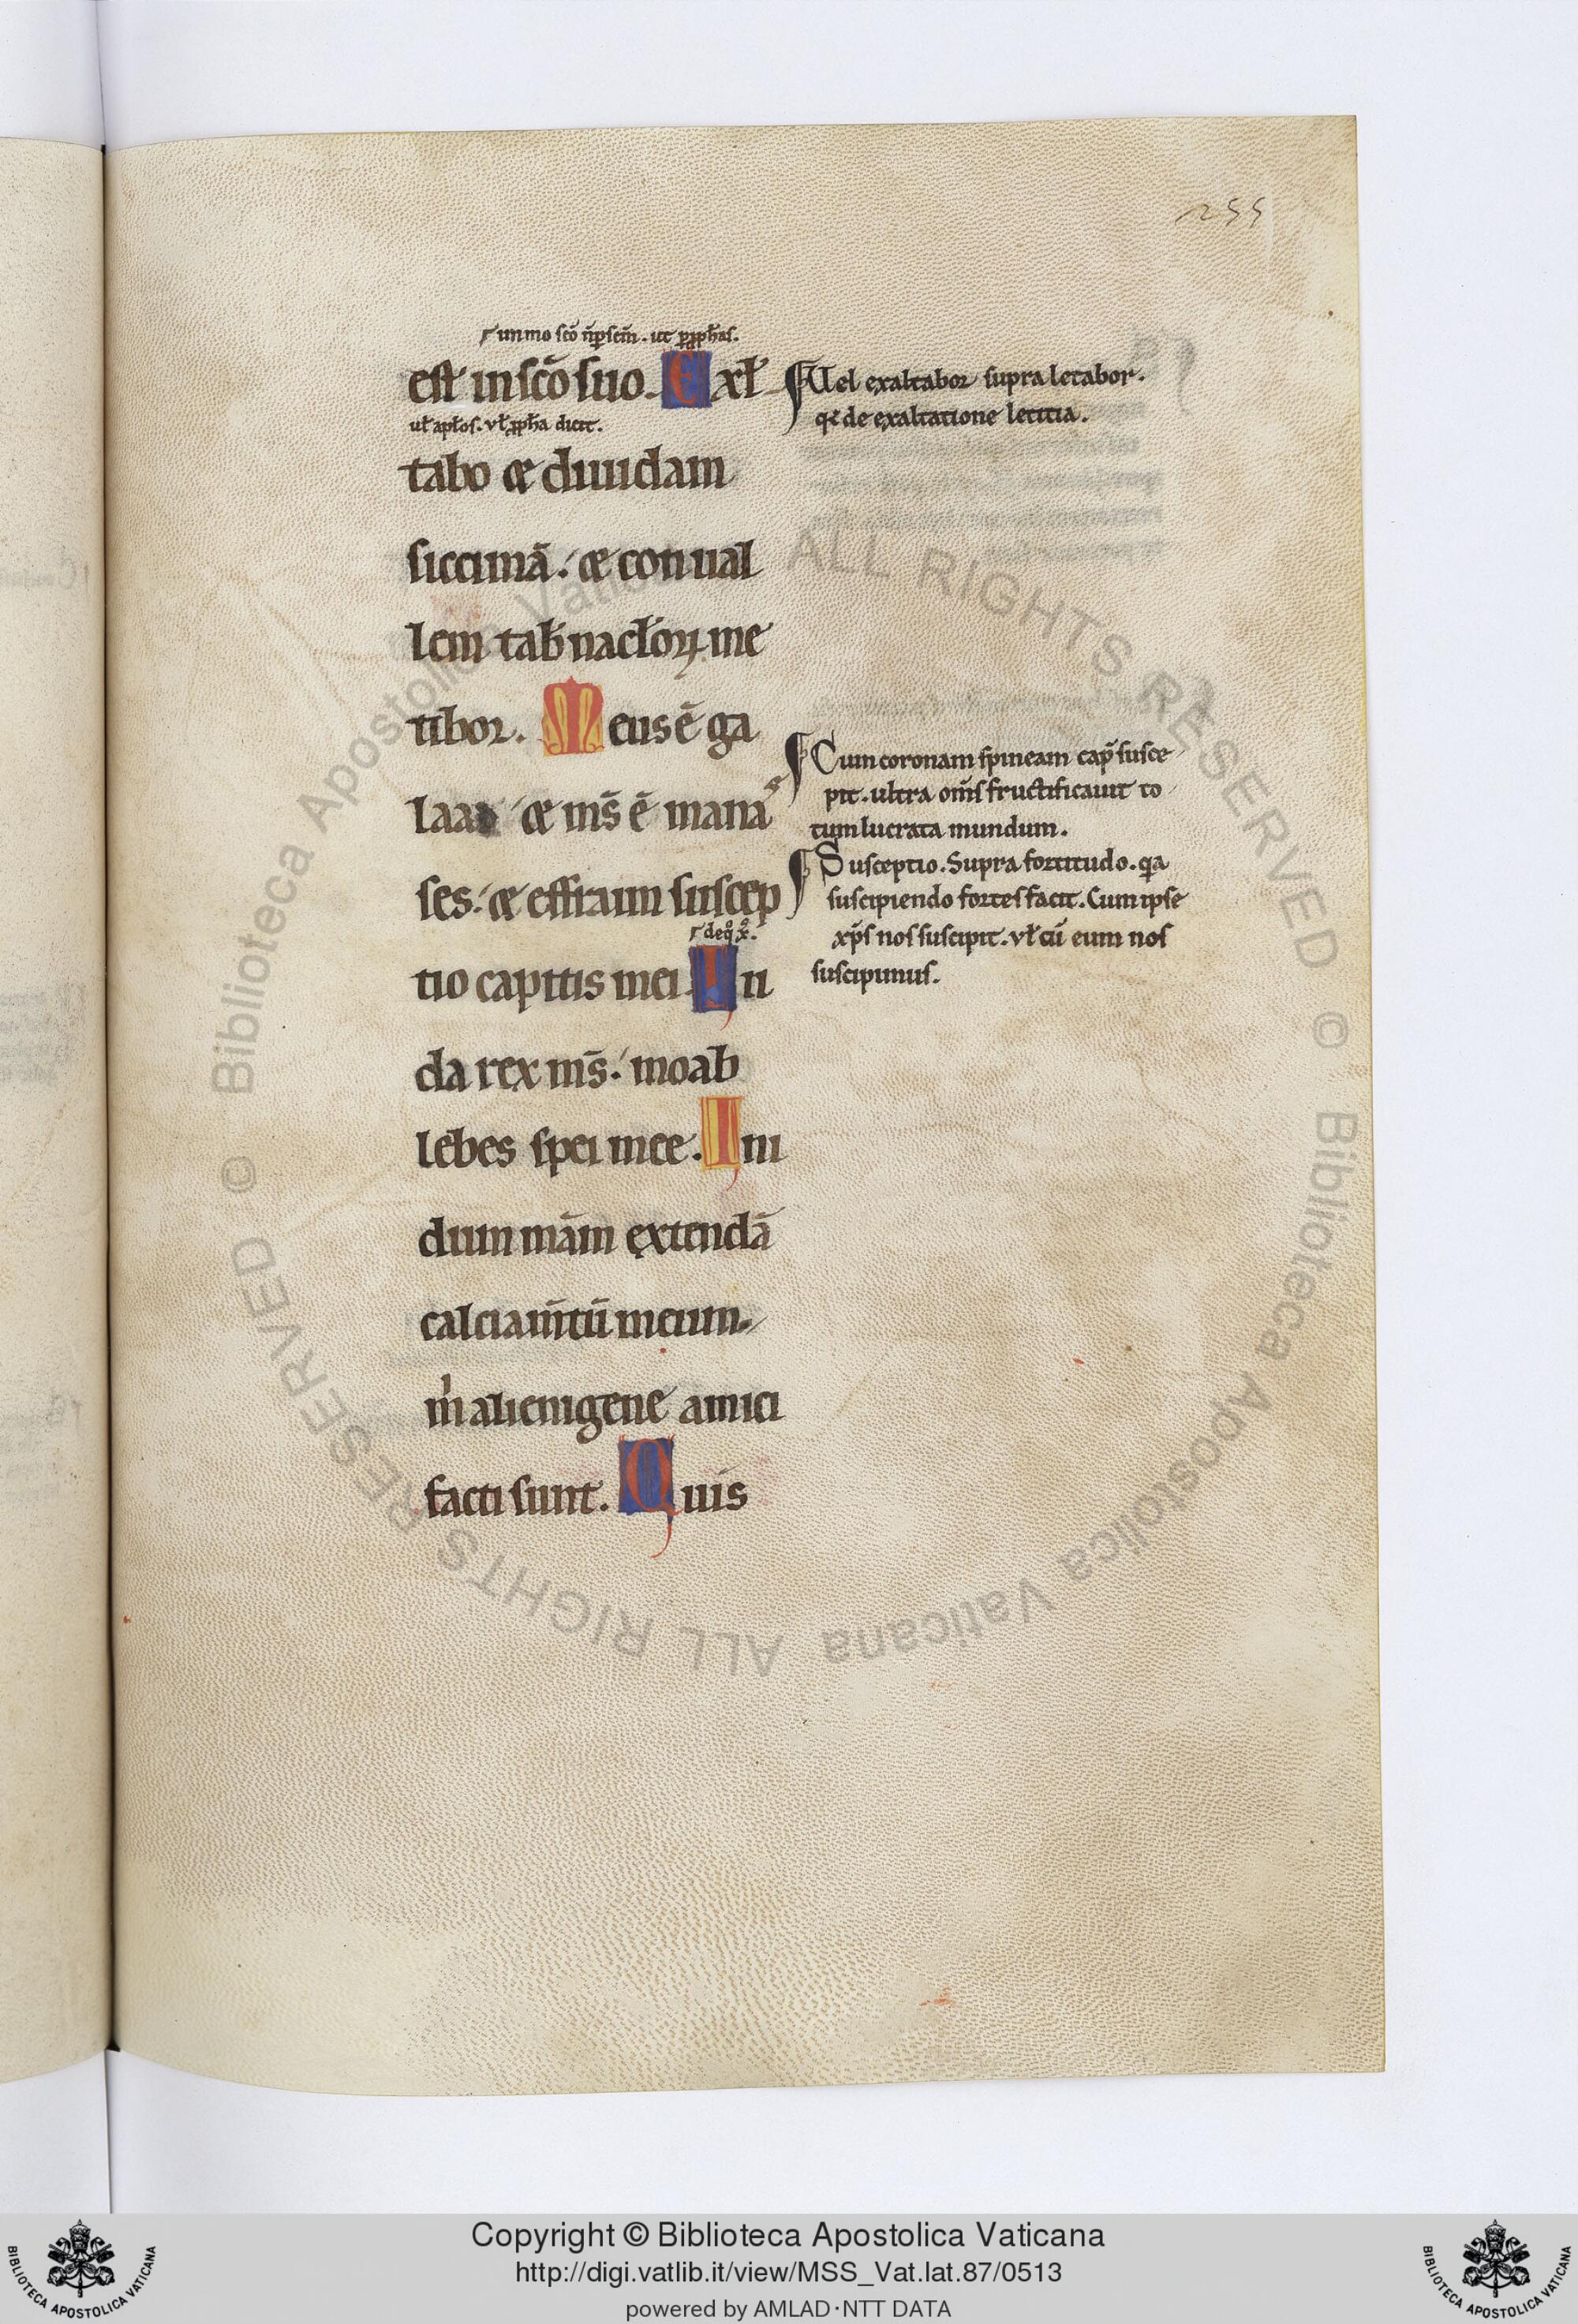 255
est in sc̄o suo. Exł
uł apłos. vł ꝓpħa dicit.
tabo & diuidam
siccimā. & conual
lem tab̄nacłoꝝ me
tibor. Meus ē ga
laad & ms̄ ē mana
ses. & effraim suscep
tio capitis mei. In
da rex ms̄. moab
lebes spei mee. In i
dum mām extendā
calciam̄tū meum.
m alienigene amici
facti sunt. Quis
Uel exaltabor supra letabor.
de exaltatione letitia.
Cum coronam spineam cap̄ susce
pit. ultra om̄s fructificauit to
tum lucrata mundum.
Susceptio. Supra fortitudo. qa
suscipiendo fortes facit. Cum ipse
xp̄s nos suscipit. vł cū eum nos
suscipimus.
Copyright © Biblioteca Apostolica Vaticana
http://digi.vatlib.it/view/MSS_Vat.lat.87/0513
powered by AMLAD·NTT DATA
BIBLIOTECA APOSTOLICA VATICANA
BIBLIOTECA APOSTOLICA VATICANA
© Biblioteca Apostolica Vaticana ALL RIGHTS RESERVED
© Biblioteca Apostolica Vaticana ALL RIGHTS RESERVED